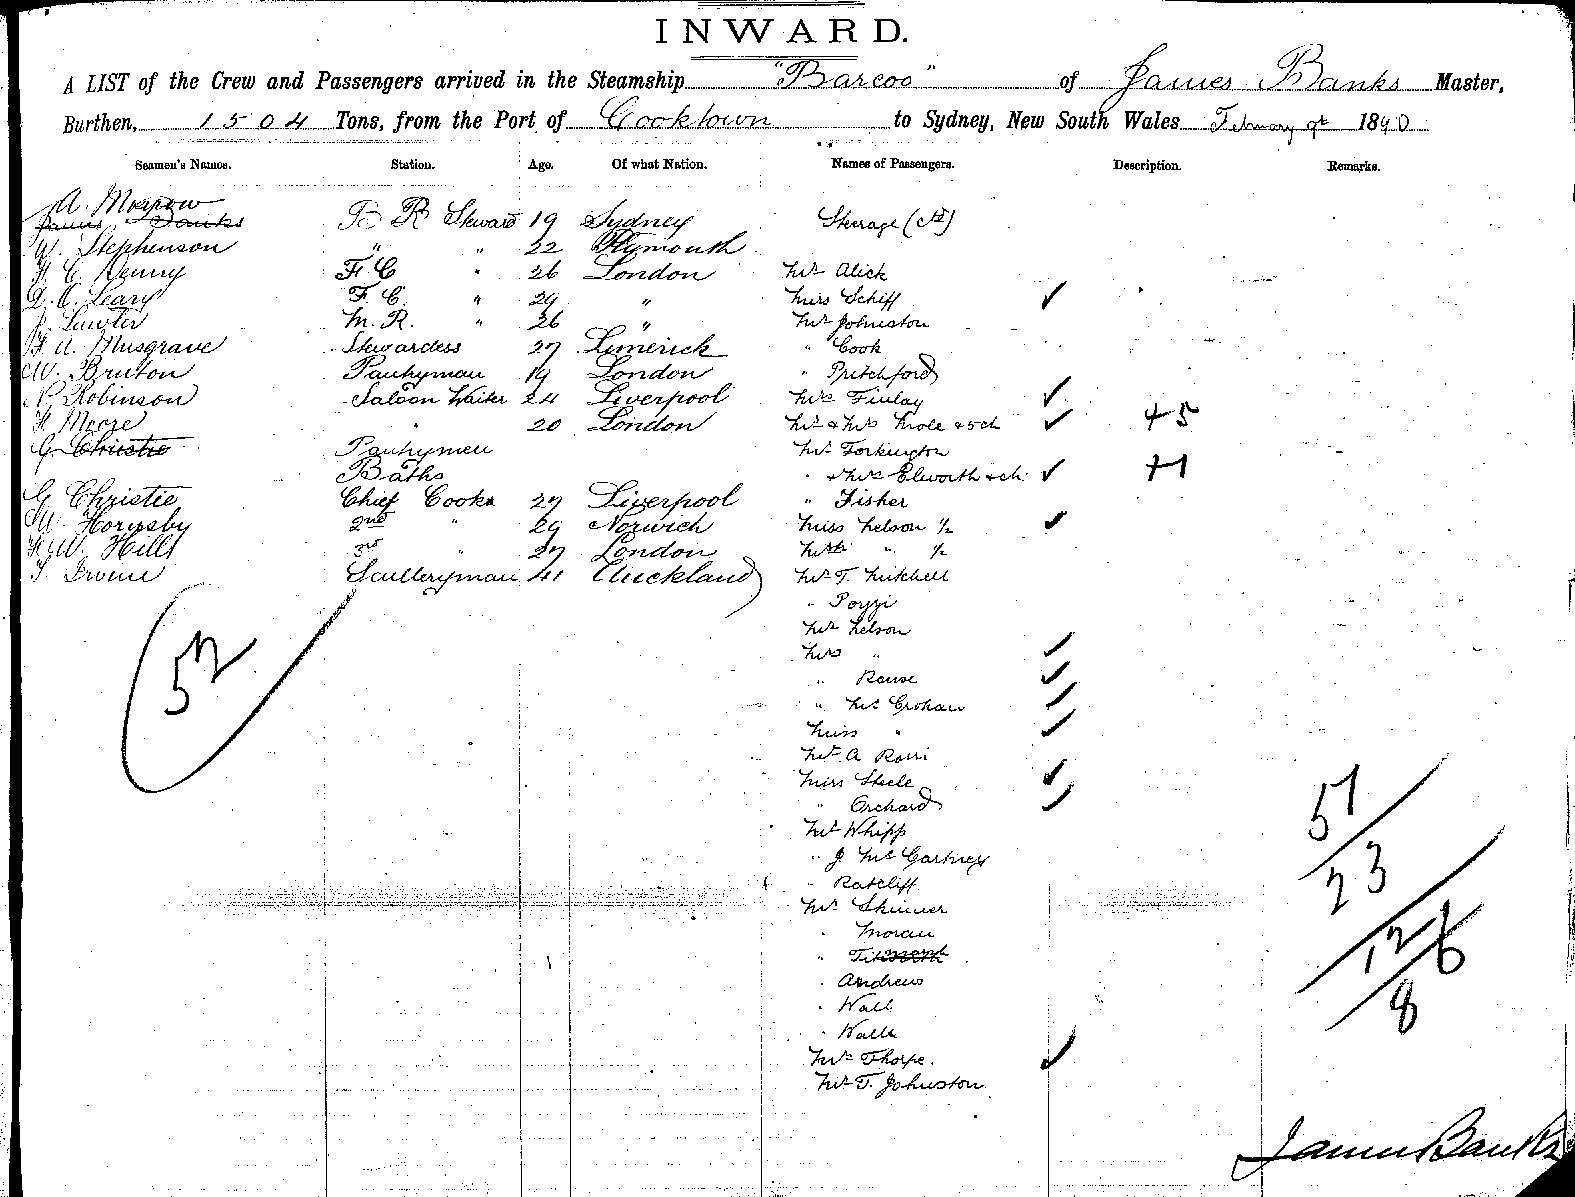 INWARD.
A LIST of the Crew and Passengers arrived in the Steamship "Barcoo" of James Banks Master,
Burthen, 1504 Tons, from the Port of Cooktown to Sydney, New South Wales February 9th 1890
Seamen's Names. Station. Age. Of what Nation. Names of Passengers. Description. Remarks.
A. Morrow
James Banks B R Steward 19 Sydney Steerage
W. Stephenson " " 22 Plymouth
H. C. Kenny F. C " 26 London Mr Alick
D. O. Leary F. C. " 29 " Miss Schiff ✓
J. Lawler M. R. " 26 " Mr Johnston
H. A. Musgrave Stewardess 27 Limerick " Cook
W. Bruton Pantryman 19 London " Pritchford
N. Robinson Saloon Waiter 24 Liverpool Mrs Finlay ✓
H. Moore " 20 London Mr & Mrs Mole & 5 ch ✓ +5
G. Christie Pantrymen Mr Torkington
Baths " & Mrs Elworth & ch ✓ +1
G. Christie Chief Cook 27 Liverpool " Fisher
W. Hornsby 2nd " 29 Norwich Miss Nelson 1/2 ✓
H. W. Hills 3rd " 27 London " 1/2
T. Irvine Sculleryman 41 Auckland Mr T. Mitchell
" Pozzi
Mr Nelson
52 Mrs " ✓
" Rouse ✓
" Mc Crohan ✓
Miss " ✓
Mr A Rossi
Miss Steele ✓
" Orchard ✓
51
Mr Whipp
" J. McCartney
23
" Ratcliff
Mr Skinner
" Moran
126
" Andrew
" Wall
8
" Walls
Mrs Thorpe. ✓
Mr T. Johnston
James Banks